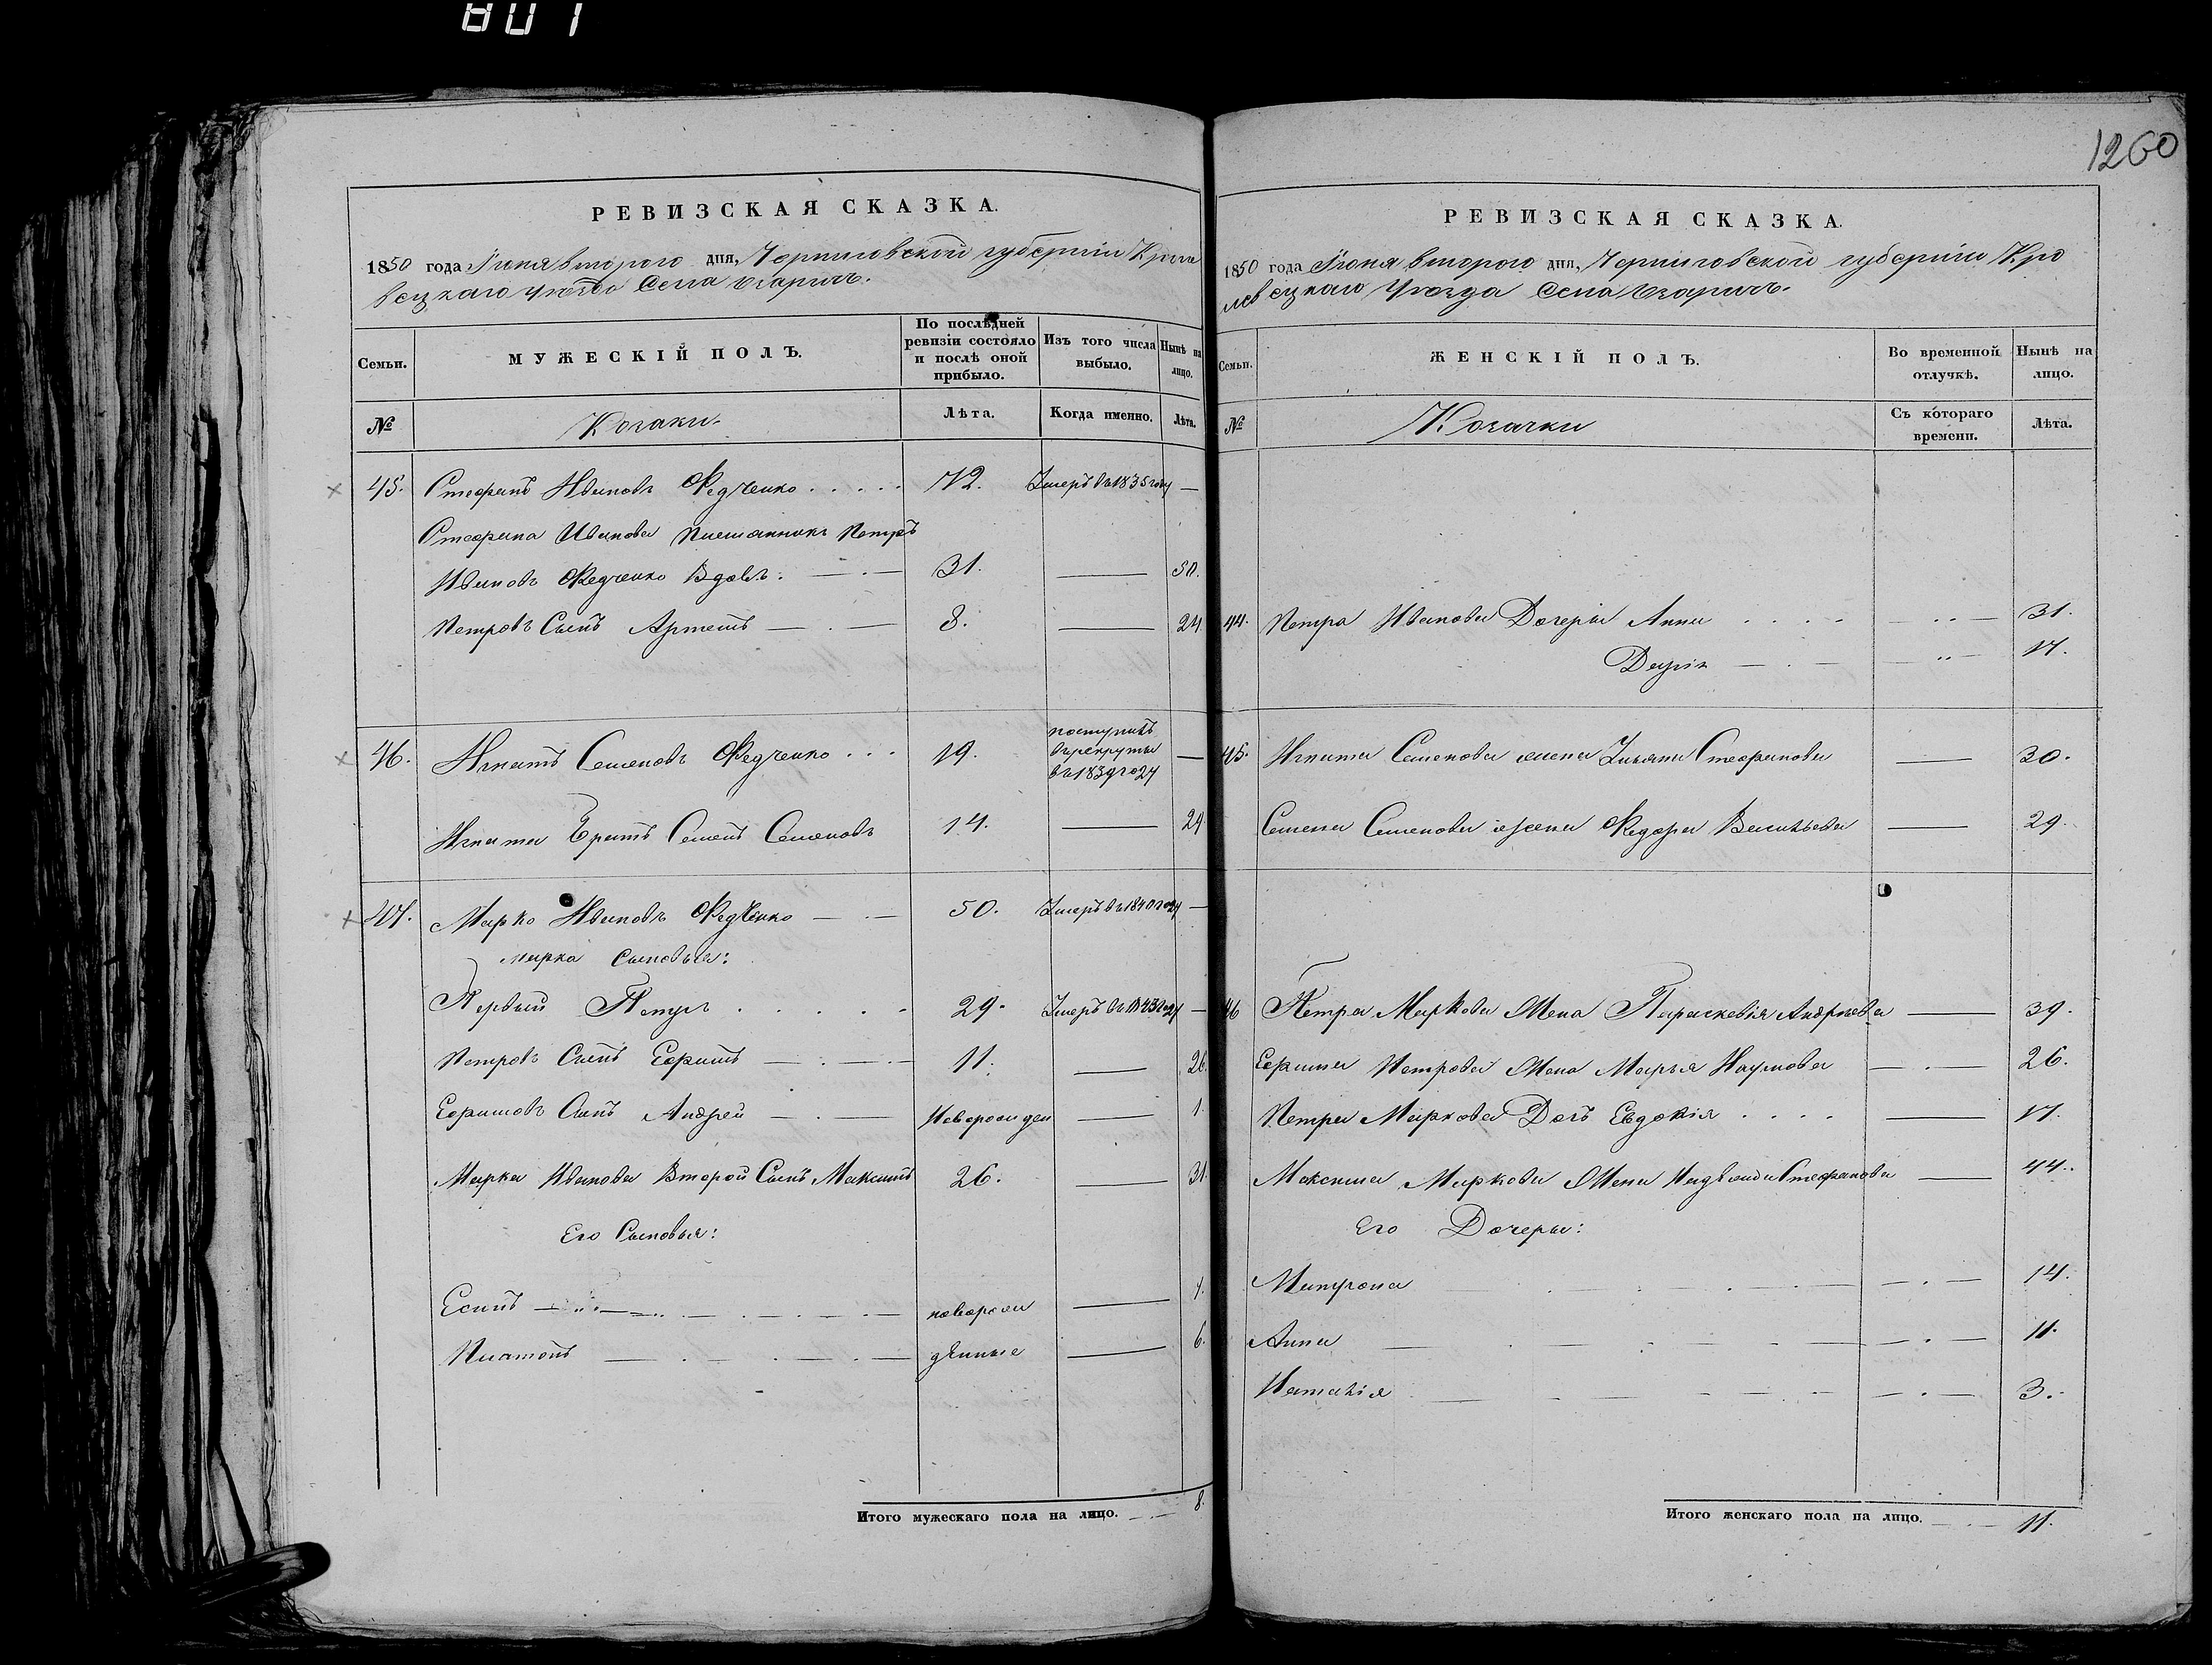 801
1260
РЕВИЗСКАЯ СКАЗКА.
1850 года Іюня второго дня, Черниговской губерніи Кроле
вецкаго уезда Села
Семьи. МУЖЕСКІЙ ПОЛЪ. По послѣдней ревизіи состояло и послѣ оной прибыло. Изъ того числа выбыло. Нынѣ на лицо.
№ Козаки. Лѣта. Когда именно. Лѣта.
45. Стефанъ Ивановъ Федченко 72. Умеръ въ 1835 году —
Стефана Иванова племянникъ Петръ
Ивановъ Федченко Вдовъ: 31. — 50.
Петровъ Сынъ Артемъ — 8. — 24.
46. Игнатъ Семеновъ Федченко 19. поступилъ въ рекруты въ 1839 году —
Игната Братъ Семенъ Семеновъ 14. — 29.
47. Марко Ивановъ Федченко — 50. Умеръ въ 1840 году —
Марка Сыновья:
Первый Петръ 29. Умеръ въ 1843 году —
Петровъ Сынъ Ефимъ — 11. — 26.
Ефимовъ Сынъ Андрей — Новорожден — 1.
Марка Иванова Второй Сынъ Максимъ 26. — 31.
Его Сыновья:
Есипъ — новорож —
Платонъ — денные — 6.
Итого мужескаго пола на лицо. 8.
РЕВИЗСКАЯ СКАЗКА.
1850 года Іюня второго дня, Черниговской губерніи Кро
левецкаго Уезда Села
Семьи. ЖЕНСКІЙ ПОЛЪ. Во временной отлучкѣ. Нынѣ на лицо.
№ Козачки Съ котораго времени. Лѣта.
44. Петра Иванова Дочери Анна 31.
Дарія — 17.
45. Игната Семенова жена Ульяна Стефанова — 30.
Семена Семенова жена Федора Васильева — 29.
46 Петра Маркова Жена Параскевія Андреева — 39.
Ефима Петрова Жена Марья Наумова — 26.
Петра Маркова Дочь Евдокія — 17.
Максима Маркова Жена Стефанова — 44.
Его Дочери:
Матрона — 14.
Анна — 11.
Наталія — 3.
Итого женскаго пола на лицо. 11.